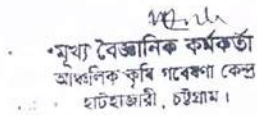 মূখ্য বৈজ্ঞানিক কর্মকর্তা
আঞ্চলিক কৃষি গবেষণা কেন্দ্র
হাটহাজারী, চট্টগ্রাম।